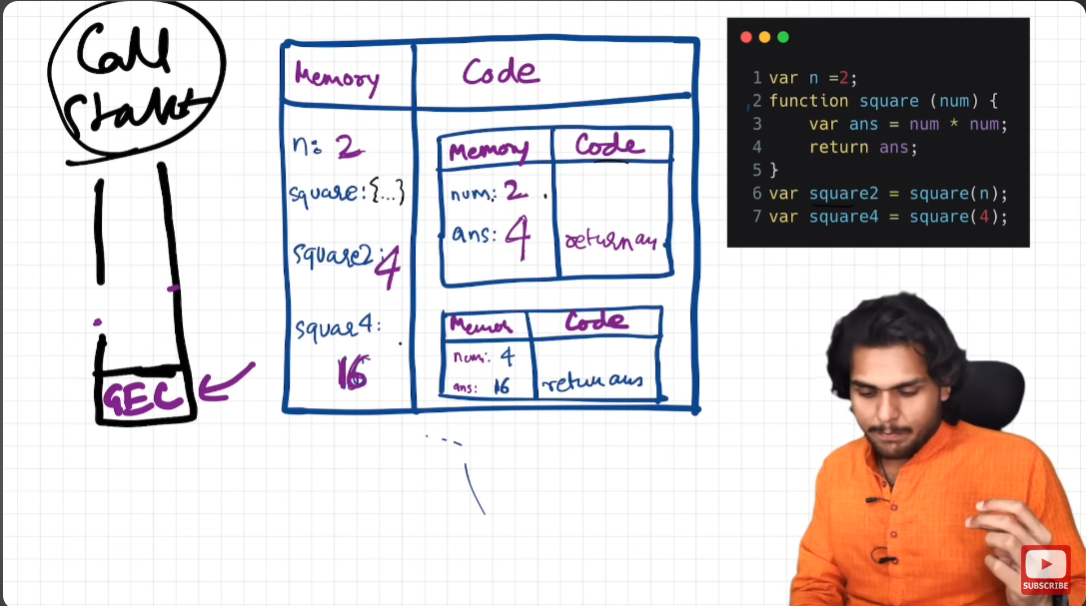 Call
Stakt
GEC
Memory Code
n: 2
square:{...}
square2: 4
squae4:
16
Memory Code
num: 2
ans: 4
return an
Memor Code
num: 4
ans: 16
return ans
1 var n =2;
2 function square (num) {
3 var ans = num * num;
4 return ans;
5 }
6 var square2 = square(n);
7 var square4 = square(4);
SUBSCRIBE